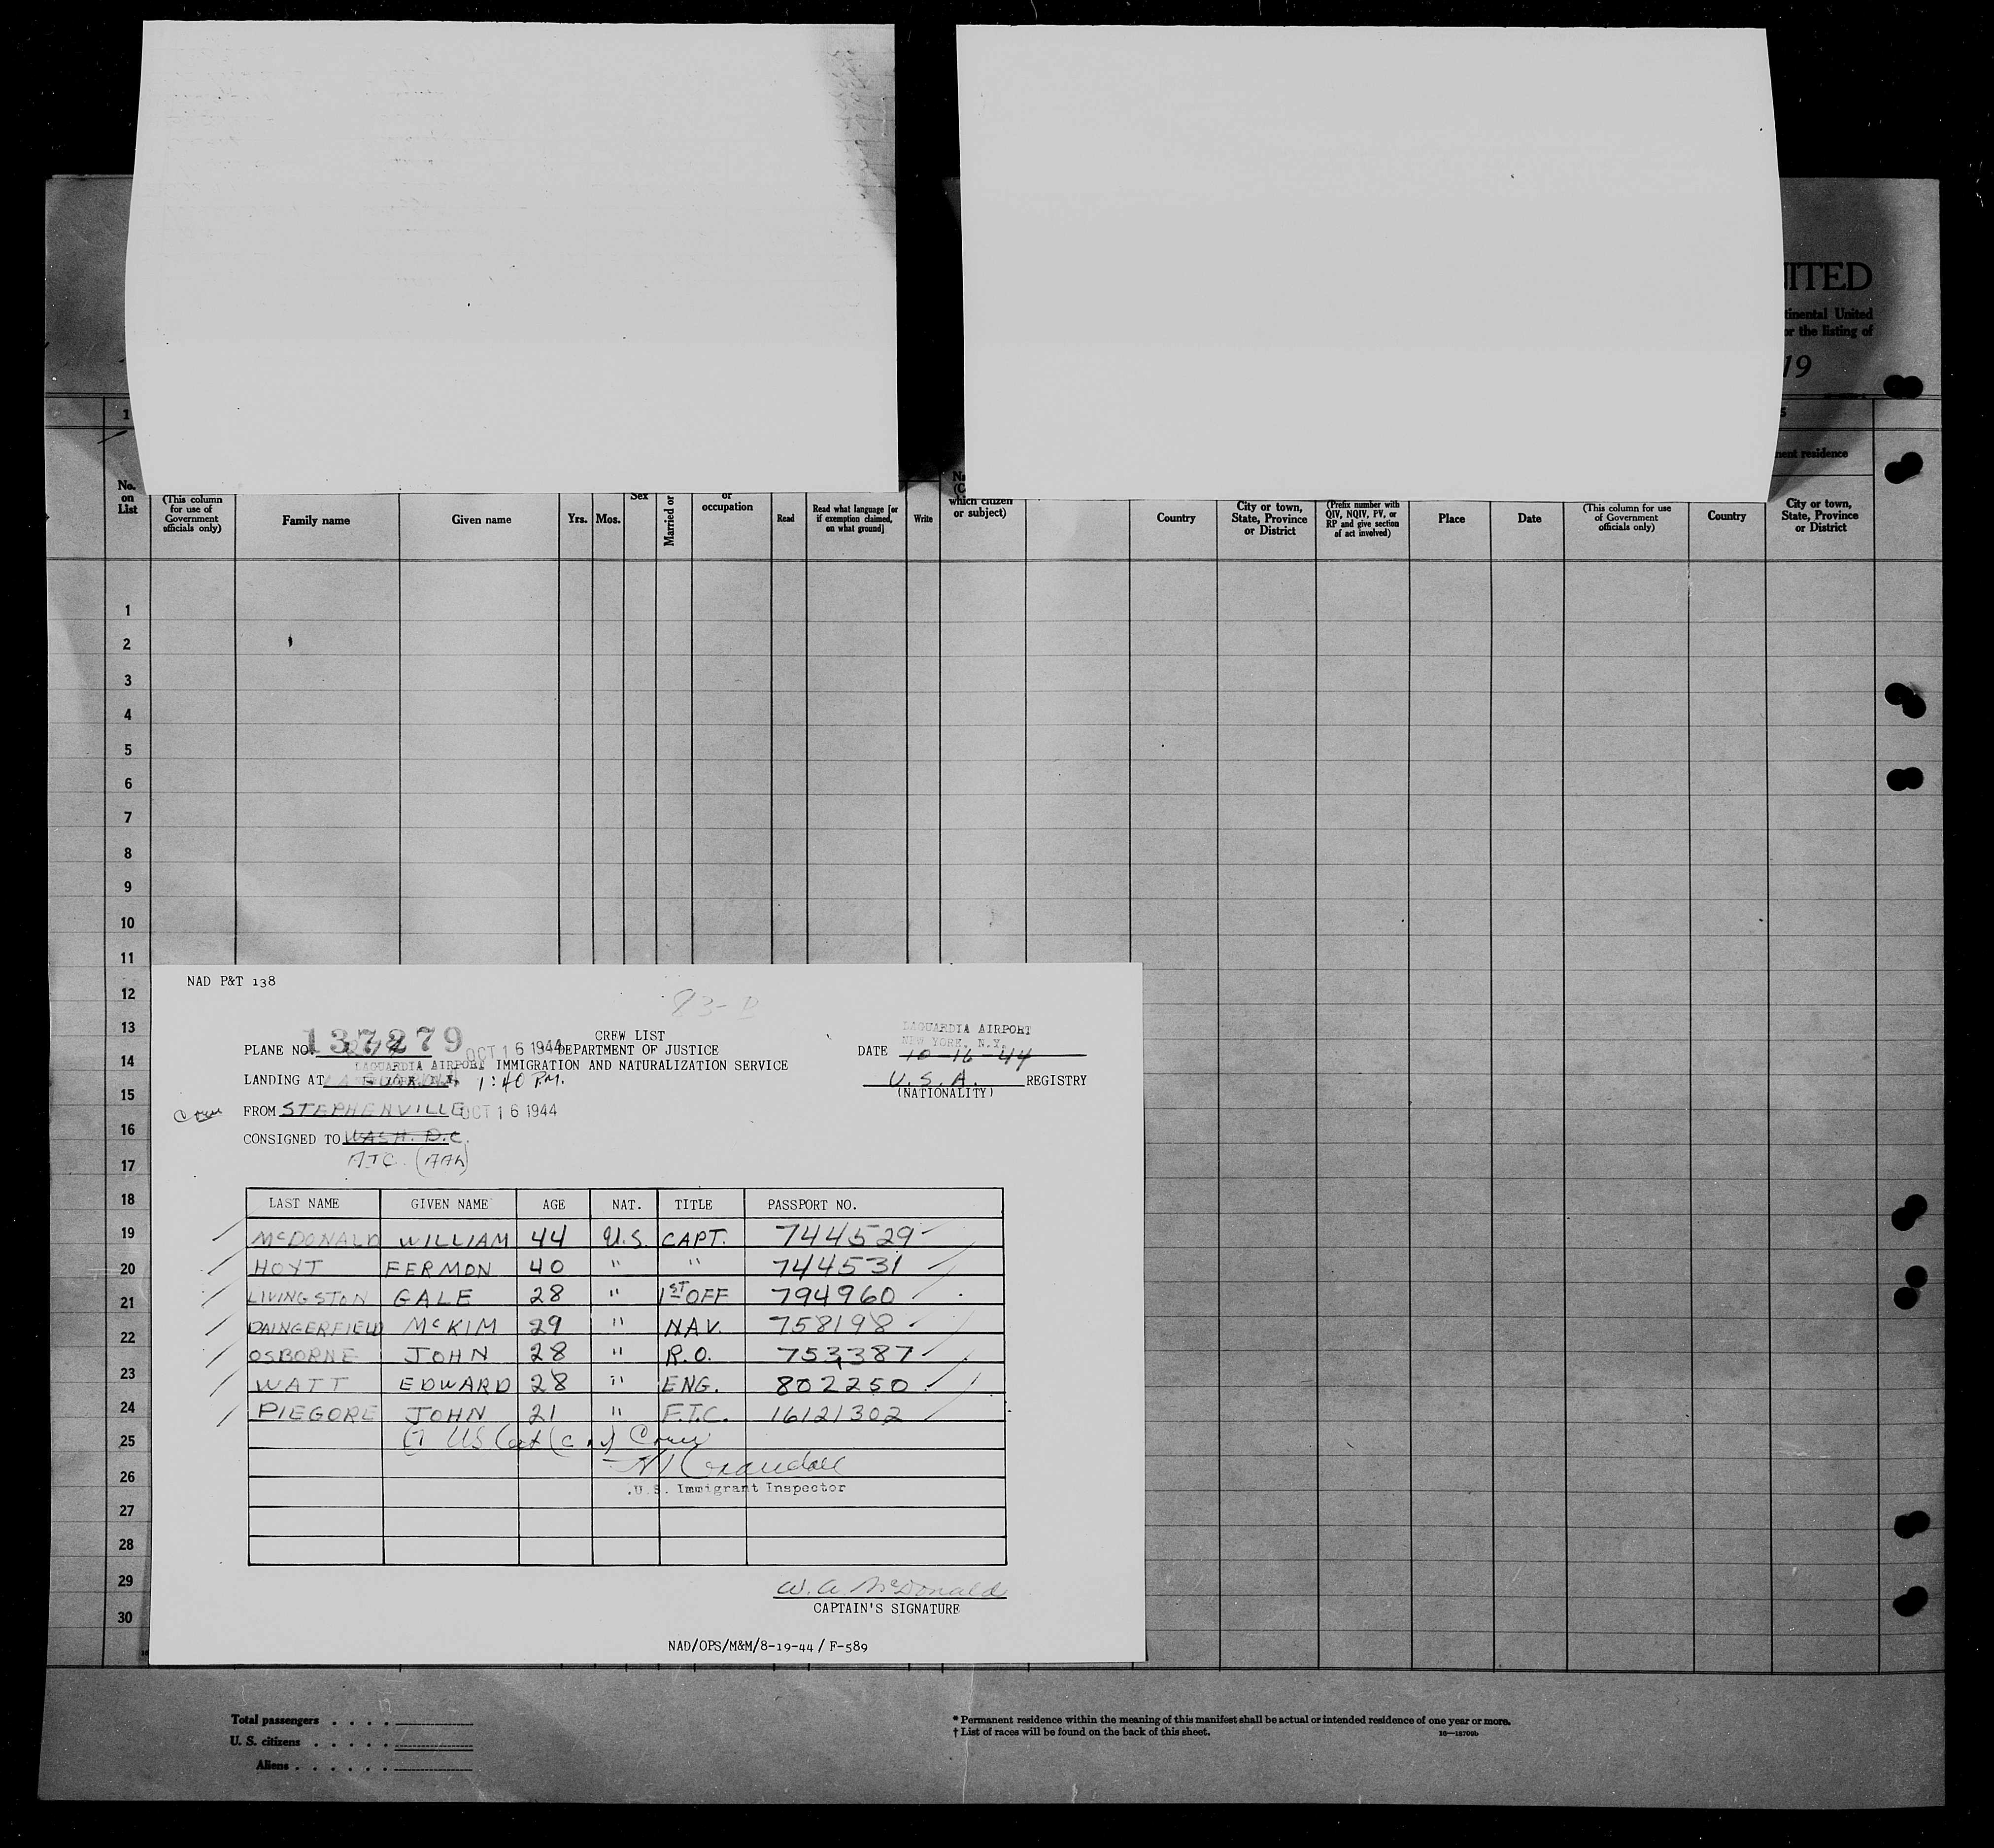 NITED
tinental United
or the listing of
19
1
5
nent residence
No. on List
(This column for use of Government officials only)
Family name
Given name
Yrs.
Mos.
Sex
Married or
or occupation
Read
Read what language [or if exemption claimed, on what ground]
Write
which citizen or subject)
Country
City or town, State, Province or District
(Prefix number with QIV, NQIV, PV, or RP and give section of act involved)
Place
Date
(This column for use of Government officials only)
Country
City or town, State, Province or District
1
2
3
4
5
6
7
8
9
10
11
12
13
14
15
16
17
18
19
20
21
22
23
24
25
26
27
28
29
30
NAD P&T 138
93-
CREW LIST
DEPARTMENT OF JUSTICE
IMMIGRATION AND NATURALIZATION SERVICE
PLANE NO. 137279 OCT 16 1944
LAGUARDIA AIRPORT
LAGUARDIA AIRPORT
NEW YORK, N.Y.
DATE 10-16-44
LANDING AT 1:40 P.M.
U.S.A. REGISTRY
(NATIONALITY)
Crew
FROM STEPHENVILLE OCT 16 1944
CONSIGNED TO WASH. D.C.
ATC.
LAST NAME GIVEN NAME AGE NAT. TITLE PASSPORT NO.
McDONALD WILLIAM 44 U.S. CAPT. 744529
HOYT FERMON 40 " " 744531
LIVINGSTON GALE 28 " 1ST OFF 794960
DAINGERFIELD McKIM 29 " NAV. 758198
OSBORNE JOHN 28 " R.O. 753387
WATT EDWARD 28 " ENG. 802250
PIEGORE JOHN 21 " F.T.C. 16121302
U.S. Immigrant Inspector
W. A. McDonald
CAPTAIN'S SIGNATURE
NAD/OPS/M&M/8-19-44 / F-589
Total passengers
U. S. citizens
Aliens
* Permanent residence within the meaning of this manifest shall be actual or intended residence of one year or more.
† List of races will be found on the back of this sheet.